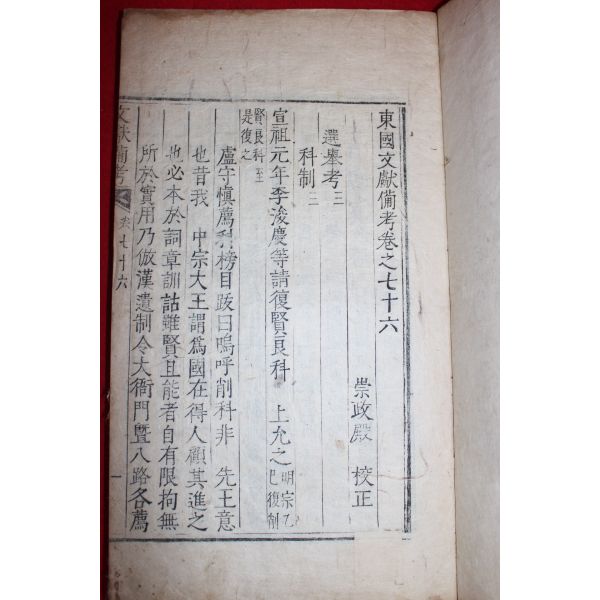 東國文獻備考卷之七十六
崇政殿 校正
選擧考三
科制二
宣祖元年李浚慶等請復賢良科 上允之明宗乙巳復削賢良科至是復之
盧守愼薦科榜目跋曰嗚呼削科非 先王意
也昔我 中宗大王謂爲國在得人顧其進之
也必本於詞章訓詁雖賢且能者自有限拘無
所於實用乃倣漢遺制令大衙門曁八路各薦
文獻備考
卷七十六
一